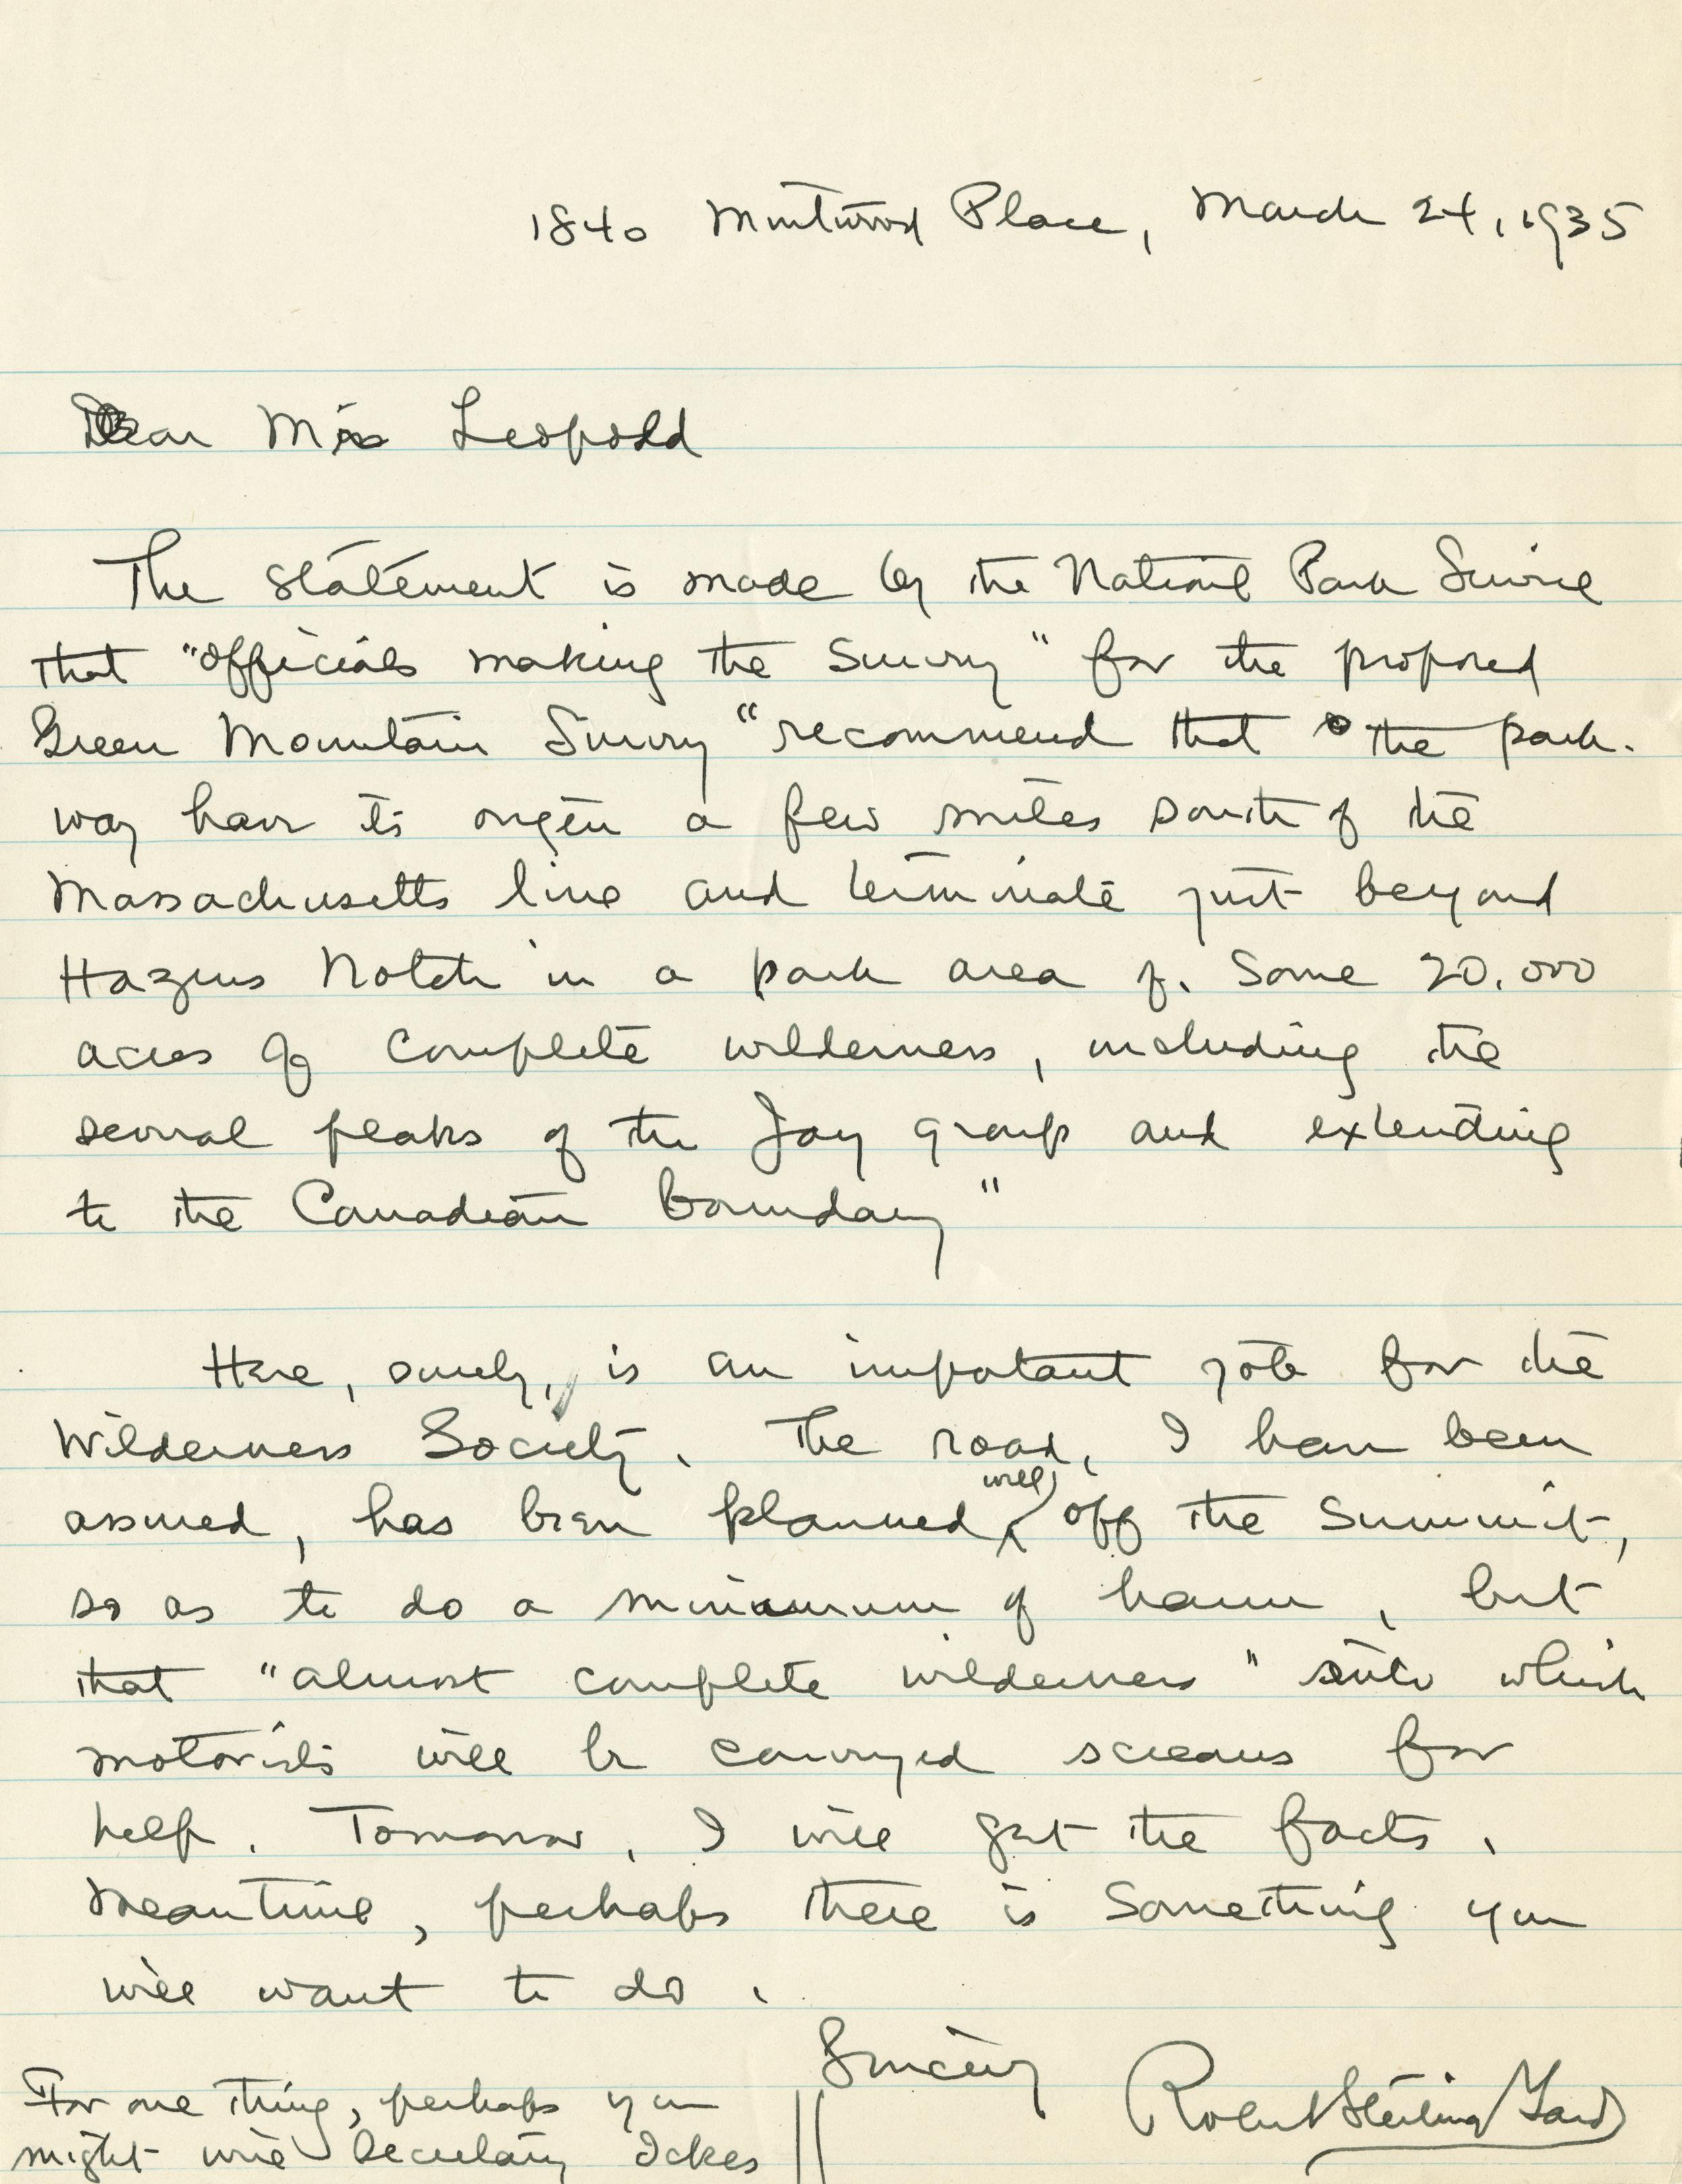 1840 Mintwood Place, March 24, 1935
Dear Miss Leopold
The statement is made by the National Park Service
that "officials making the survey" for the proposed
Green Mountain Survey "recommend that the park-
way have its origin a few miles south of the
Massachusetts line and terminate just beyond
Hazens Notch in a park area of some 20,000
acres of complete wilderness, including the
several peaks of the Jay group and extending
to the Canadian boundary"
Here, surely, is an impotant job for the
Wilderness Society. The road, I have been
assured, has been planned well off the summit,
so as to do a minimum of harm, but
that "almost complete wilderness" into which
motorists will be conveyed screams for
help. Tomorrow, I will get the facts.
Meantime, perhaps there is something you
will want to do.
Sincerely
Robert Sterling Yard
For one thing, perhaps you
might wire Secretary Ickes